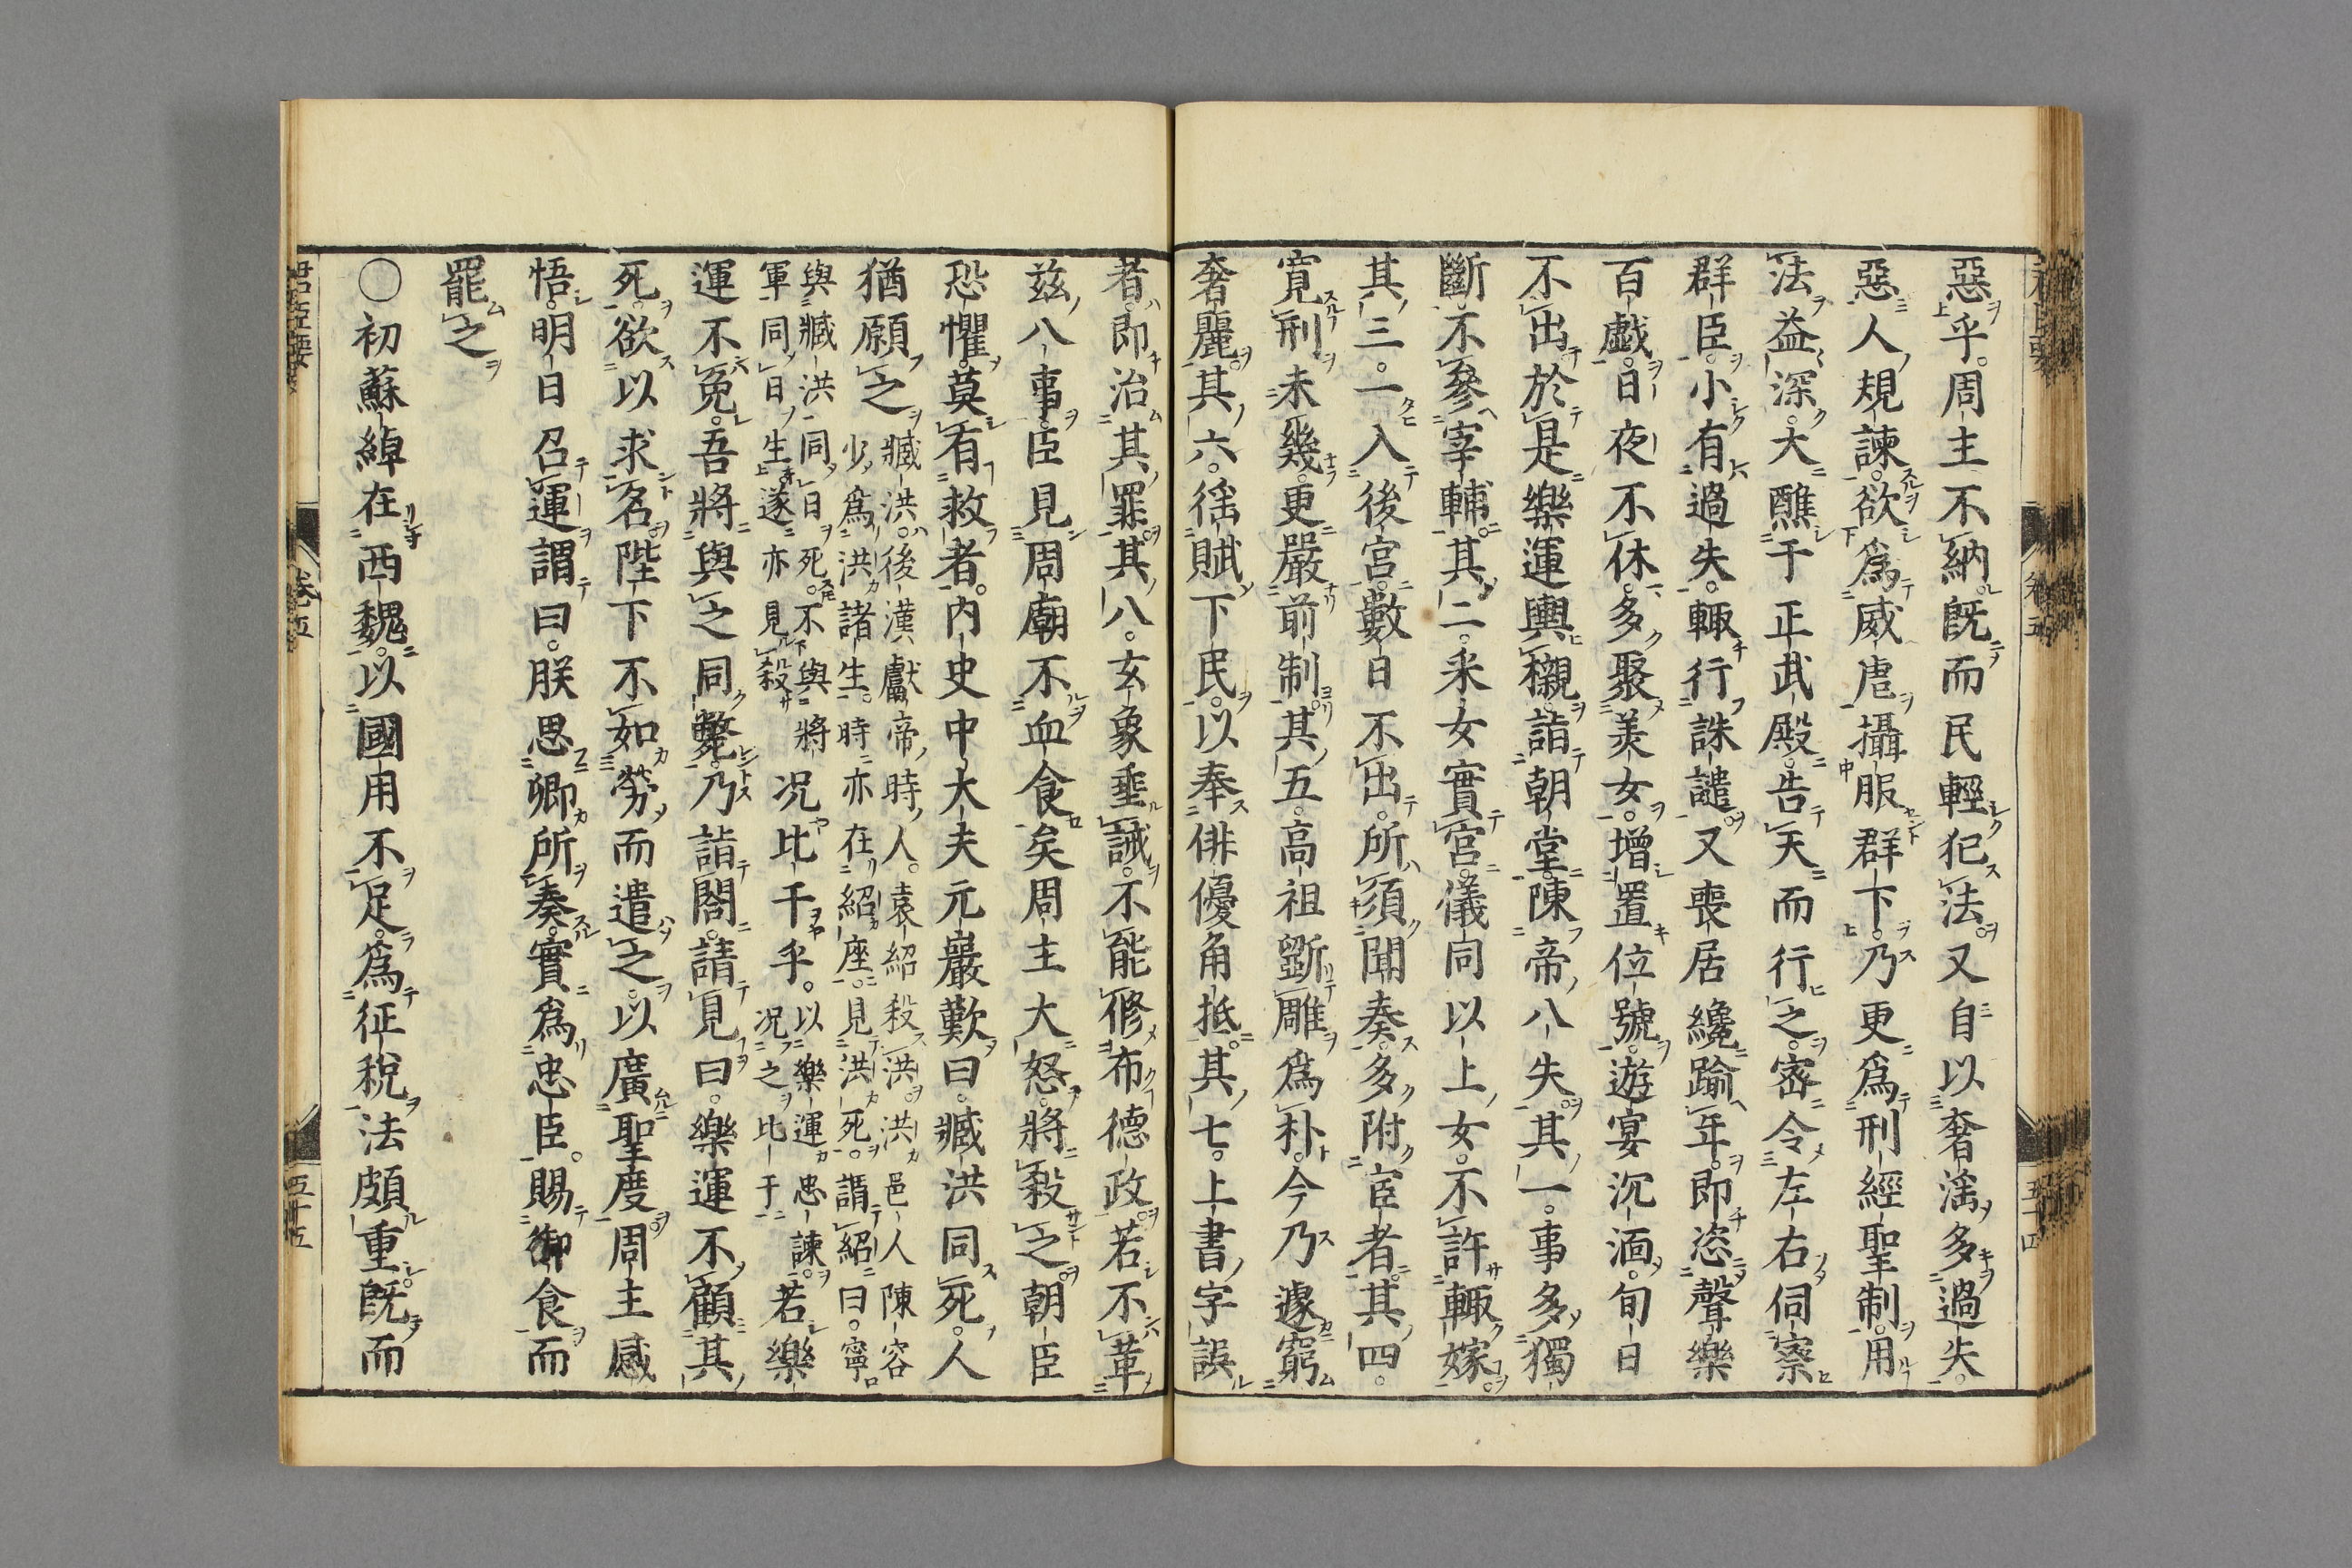 惡乎。周主不納既而民輕犯法又自以奢滛多過失。
惡人規諫。欲爲威虐攝服群下。乃更爲刑經聖制。用
法益深。大醮于正武殿。告天而行之。宻令左右伺察
群臣。小有過失。輙行誅譴又喪居纔踰年。即恣聲樂
百戯。日夜不休。多聚美女。增置位號。遊宴沉湎。旬日
不出於是樂運輿櫬。詣朝堂。陳帝八失。其一。事多獨
斷。不參宰輔。其二。采女實宮。儀同以上女。不許輙嫁
其三。一入後宮。數日不出。所須聞奏。多附宦者。其四。
寬刑未幾。更嚴前制。其五。高祖斵雕爲朴。今乃遽窮
奢麗。其六。徭賦下民。以奉俳優角抵。其七。上書字誤
者。即治其罪。其八。玄象垂誡。不能修布德政。若不革
茲八事。臣見周廟不血食矣周主大怒。將殺之。朝臣
恐懼。莫有救者。内史中大夫元巖歎曰。臧洪同死。人
猶願之
臧洪。後漢獻帝時人。袁紹殺洪。洪邑人陳容
少爲洪諸生。時亦在紹座。見洪死。謂紹曰。寧
與臧洪同日死。不與將
軍同日生遂亦見殺
况比干乎。
以樂運忠諫。
况之比于
若樂
運不免。吾將與之同斃。乃詣閤。請見曰。樂運不顧其
死。欲以求名。陛下不如勞而遣之。以廣聖度。周主感
悟。明日召運謂曰。朕思卿所奏。實爲忠臣。賜御食而
罷之
○初蘇綽在西魏。以國用不足。爲征税法頗重。既而
君臣要
卷五
五十五